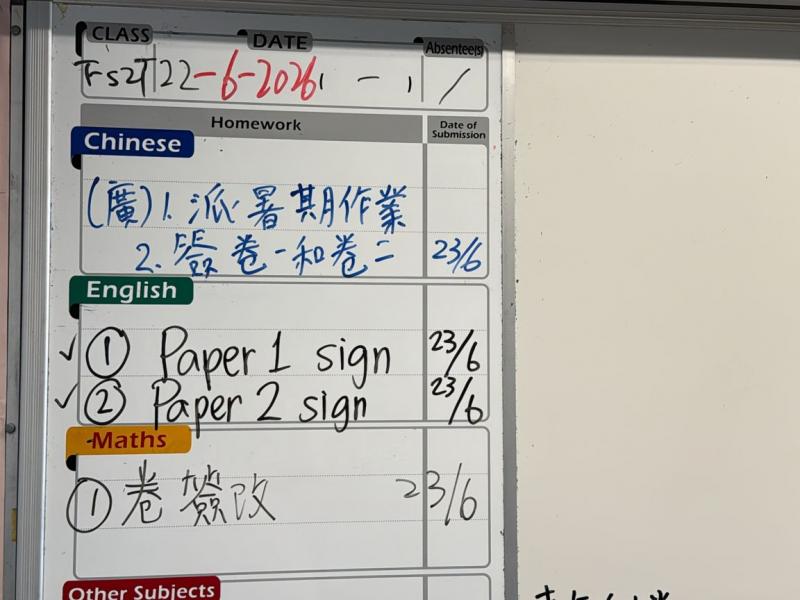 CLASS DATE Absentee(s)
22-6-2026 /
Homework Date of Submission
Chinese
(廣) 1. 派暑期作業
2. 簽卷一和卷二 23/6
English
✓ ① Paper 1 sign 23/6
✓ ② Paper 2 sign 23/6
Maths
① 卷簽改 23/6
Other Subjects